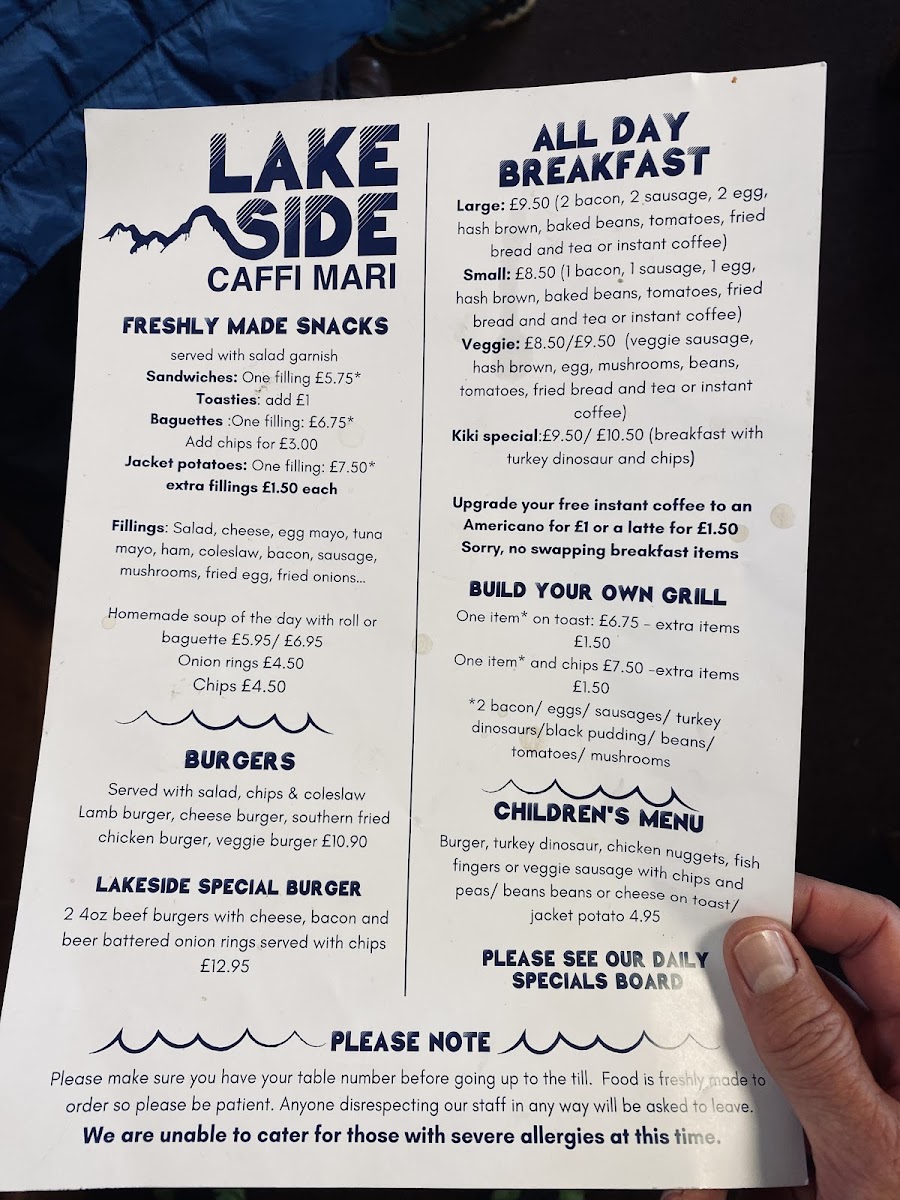 LAKE
SIDE
CAFFI MARI
FRESHLY MADE SNACKS
served with salad garnish
Sandwiches: One filling £5.75*
Toasties: add £1
Baguettes :One filling: £6.75*
Add chips for £3.00
Jacket potatoes: One filling: £7.50*
extra fillings £1.50 each
Fillings: Salad, cheese, egg mayo, tuna
mayo, ham, coleslaw, bacon, sausage,
mushrooms, fried egg, fried onions...
Homemade soup of the day with roll or
baguette £5.95/ £6.95
Onion rings £4.50
Chips £4.50
BURGERS
Served with salad, chips & coleslaw
Lamb burger, cheese burger, southern fried
chicken burger, veggie burger £10.90
LAKESIDE SPECIAL BURGER
2 4oz beef burgers with cheese, bacon and
beer battered onion rings served with chips
£12.95
ALL DAY
BREAKFAST
Large: £9.50 (2 bacon, 2 sausage, 2 egg,
hash brown, baked beans, tomatoes, fried
bread and tea or instant coffee)
Small: £8.50 (1 bacon, 1 sausage, 1 egg,
hash brown, baked beans, tomatoes, fried
bread and and tea or instant coffee)
Veggie: £8.50/£9.50 (veggie sausage,
hash brown, egg, mushrooms, beans,
tomatoes, fried bread and tea or instant
coffee)
Kiki special:£9.50/ £10.50 (breakfast with
turkey dinosaur and chips)
Upgrade your free instant coffee to an
Americano for £1 or a latte for £1.50
Sorry, no swapping breakfast items
BUILD YOUR OWN GRILL
One item* on toast: £6.75 - extra items
£1.50
One item* and chips £7.50 -extra items
£1.50
*2 bacon/ eggs/ sausages/ turkey
dinosaurs/black pudding/ beans/
tomatoes/ mushrooms
CHILDREN'S MENU
Burger, turkey dinosaur, chicken nuggets, fish
fingers or veggie sausage with chips and
peas/ beans beans or cheese on toast/
jacket potato 4.95
PLEASE SEE OUR DAILY
SPECIALS BOARD
PLEASE NOTE
Please make sure you have your table number before going up to the till. Food is freshly made to
order so please be patient. Anyone disrespecting our staff in any way will be asked to leave.
We are unable to cater for those with severe allergies at this time.